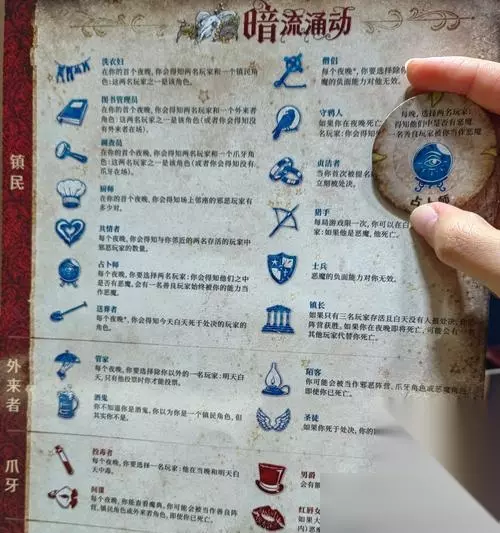 暗流涌动
镇民
洗衣妇
在你的首个夜晚,你会得知两名玩家和一个镇民角
色:这两名玩家之一是该角色。
图书管理员
在你的首个夜晚,你会得知两名玩家和一个外来者
角色:这两名玩家之一是该角色(或者你会得知没
有外来者在场)。
调查员
在你的首个夜晚,你会得知两名玩家和一个爪牙角
色:这两名玩家之一是该角色(或者你会得知没有
爪牙在场)。
厨师
在你的首个夜晚,你会得知场上邻座的邪恶玩家有
多少对。
共情者
每个夜晚,你会得知与你邻近的两名存活的玩家中
邪恶玩家的数量。
占卜师
每个夜晚,你要选择两名玩家:你会得知他们之中
是否有恶魔。会有一名善良玩家始终被你的能力当
作恶魔。
送葬者
每个夜晚*,你会得知今天白天死于处决的玩家的
角色。
僧侣
每个夜晚*,你要选择除你
魔的负面能力对他无效。
守鸦人
如果你在夜晚死亡
名玩家:你会得知
贞洁者
当你首次被提名
立刻被处决。
猎手
每局游戏限一次,你可以在白
家:如果他是恶魔,他死亡。
士兵
恶魔的负面能力对你无效。
镇长
如果只有三名玩家存活且白天没有人被处决,
阵营获胜。如果你在夜晚即将死亡,可能会有一
其他玩家代替你死亡。
每晚,选择两名玩家:
得知他们中是否有恶魔。
一名善良玩家被你当作恶魔
占卜师
外来者
管家
每个夜晚,你要选择除你以外的一名玩家:明天白
天,只有他投票时你才能投票。
酒鬼
你不知道你是酒鬼。你以为你是一个镇民角色,但
其实你不是。
陌客
你可能会被当作邪恶阵营、爪牙角色或恶魔角色,
即使你已死亡。
圣徒
如果你死于处决,你的
爪牙
投毒者
每个夜晚,你要选择一名玩家:他在当晚和明天白
天中毒。
间谍
每个夜晚,你能查看魔典。你可能会被当作善良阵
营、镇民角色或外来者角色,即使你已死亡。
男爵
会有
红唇女
如果大
内)恶